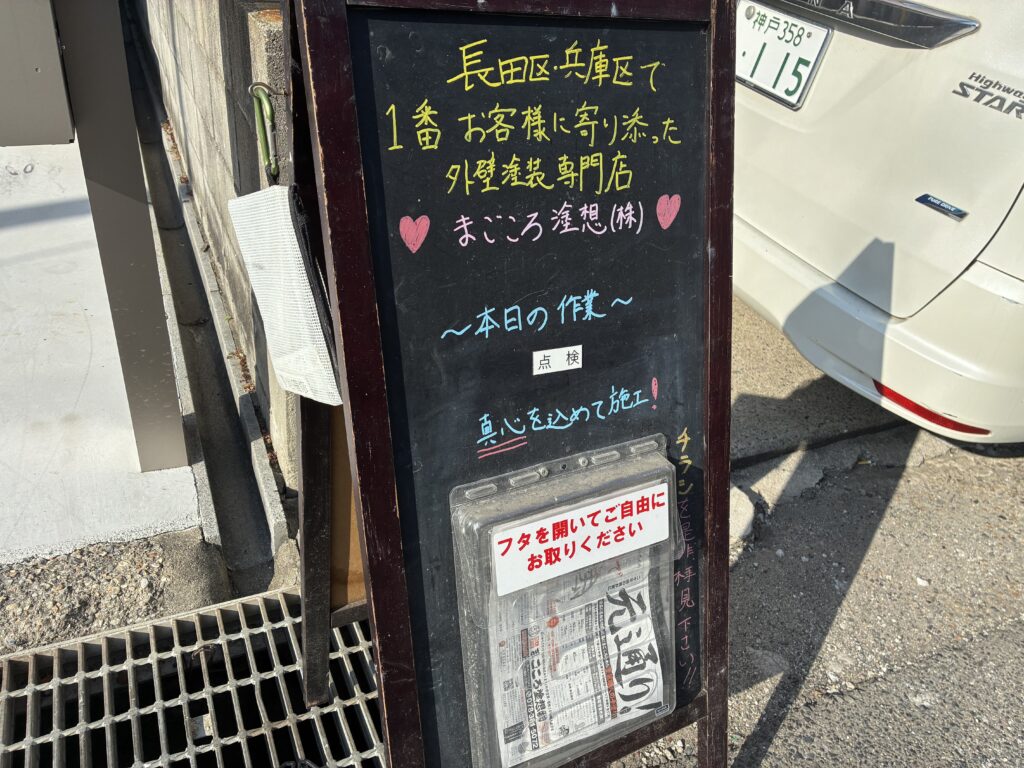 長田区・兵庫区で
1番 お客様に寄り添った
外壁塗装専門店
まごころ塗想(株)
～本日の作業～
点検
真心を込めて施工!
チラシを是非拝見下さい!!
フタを開いてご自由に
お取りください
元通り!
神戸 358
・115
NA
Highway
STAR
PURE DRIVE